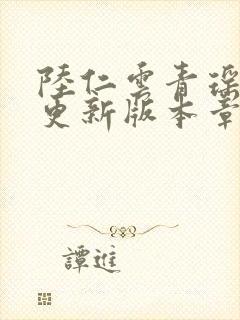 陸仁雲青瑶
更新版本章
譚進